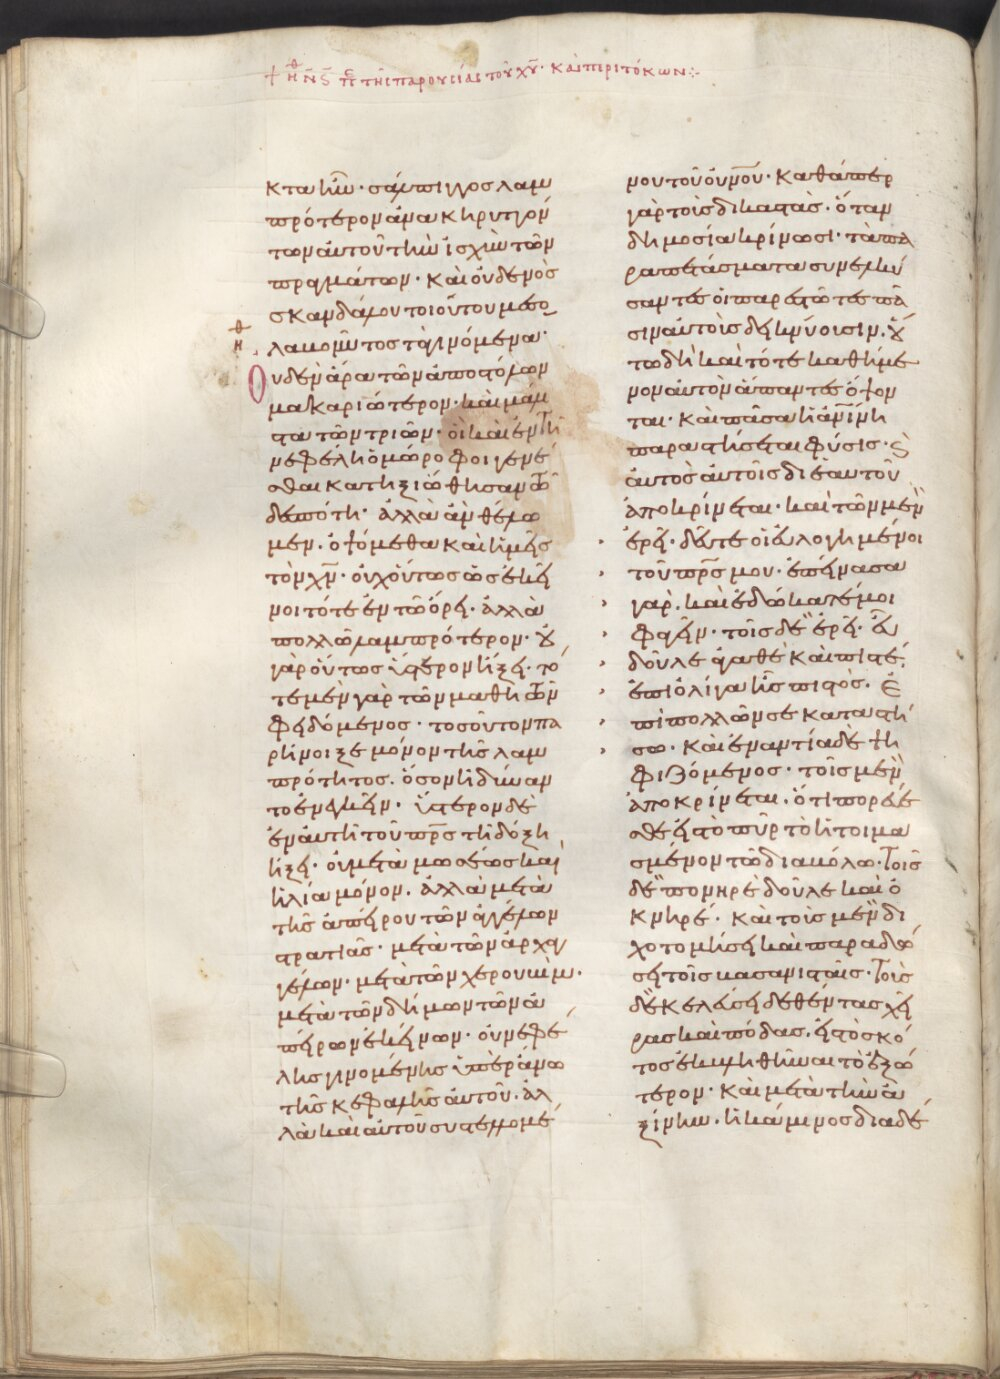 + ΗΘ ΝϚ ΠΕ ΤΗϹ ΠΑΡΟΥϹΙΑϹ ΤΟΥ ΧΥ · ΚΑΙ ΠΕΡΙ ΤΟΚΩΝ
κταὶ ἦν · σάλπιγγος λαμ
πρότερον ἀνακηρυττόν
των αὐτοῦ τὴν ἰσχὺν τῶν
πραγμάτων · καὶ οὐδενὸς
σκανδάλου τοιούτου μεσο
λαβοῦντος τὰ γινόμενα ·
ΗΘ
Οὐδὲν ἄρα τῶν ἀποστόλων
μακαριώτερον · καὶ μάλι
στα τῶν τριῶν · οἳ καὶ ἐν τῇ
νεφέλῃ ὁμώροφοι γενέ
σθαι κατηξιώθησαν τῶ
δεσπότη · ἀλλὰ ἂν θέλω
μεν · ὀψόμεθα καὶ ἡμεῖς
τὸν χν · οὐχ οὕτως ὡς ἐκεῖ
νοι τότε ἐν τῶ ὄρει · ἀλλὰ
πολλῶ λαμπρότερον · οὐ
γὰρ οὕτως ὕστερον ἥξει · τό
τε μὲν γὰρ τῶν μαθητῶν
φειδόμενος · τοσοῦτον πα
ρήνοιξε μόνον τῆς λαμ
πρότητος · ὅσον ἠδύναν
το ἐνεγκεῖν · ὕστερον δὲ
ἐν αὐτῆ τοῦ πρς τῆ δόξη
ἥξει · οὐ μετὰ μωσέως καὶ
ἡλία μόνον · ἀλλὰ μετὰ
τῆς ἀπείρου τῶν ἀγγέλων
στρατιᾶς · μετὰ τῶν ἀρχαγ
γέλων · μετὰ τῶν χερουβὶμ ·
μετὰ τῶν δήμων τῶν ἀ
πείρων ἐκείνων · οὐ νεφέ
λης γινομένης ὑπεράνω
τῆς κεφαλῆς αὐτοῦ · ἀλ
λὰ καὶ αὐτοῦ συστελλομέ
νου τοῦ οὐνου · καθάπερ
γὰρ τοῖς δικασταῖς · ὅταν
δημοσία κρίνωσι · τὰ πα
ραπετάσματα συνελκύ
σαντες οἱ παρεστῶτες πᾶ
σιν αὐτοὺς δεικνύουσιν · οὕ
τω δὴ καὶ τότε καθήμε
νον αὐτὸν ἅπαντες ὄψον
ται · καὶ πᾶσα ἡ ἀνίνη
παραστήσεται φύσις · ϗ
αὐτὸς αὐτοῖς δι' ἑαυτοῦ
ἀποκρίνεται · καὶ τῶν μὲν
ἐρεῖ · δεῦτε οἱ εὐλογημένοι
τοῦ πρς μου · ἐπείνασα
γὰρ · καὶ ἐδώκατέ μοι
φαγεῖν · τοῖς δὲ ἐρεῖ · εὖ
δοῦλε ἀγαθὲ καὶ πιστέ ·
ἐπὶ ὀλίγα ἦς πιστός · ἐ
πὶ πολλῶν σε καταστή
σω · καὶ ἐναντία δὲ ψη
φιζόμενος · τοῖς μὲν
ἀποκρίνεται · ὅτι πορεύε
σθε εἰς τὸ πῦρ τὸ ἡτοιμα
σμένον τῶ διαβόλω · τοῖς
δὲ πονηρὲ δοῦλε καὶ ὀ
κνηρέ · καὶ τοὺς μὲν δι
χοτομήσει καὶ παραδώ
σει τοῖς βασανισταῖς · τοὺς
δὲ κελεύσει δεθέντας χεῖ
ρας καὶ πόδας · εἰς τὸ σκό
τος ἐκβληθῆναι τὸ ἐξώ
τερον · καὶ μετὰ τὴν ἀ
ξίνην · ἡ κάμινος διαδέ